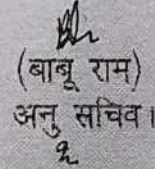 (बाबू राम)
अनु सचिव।